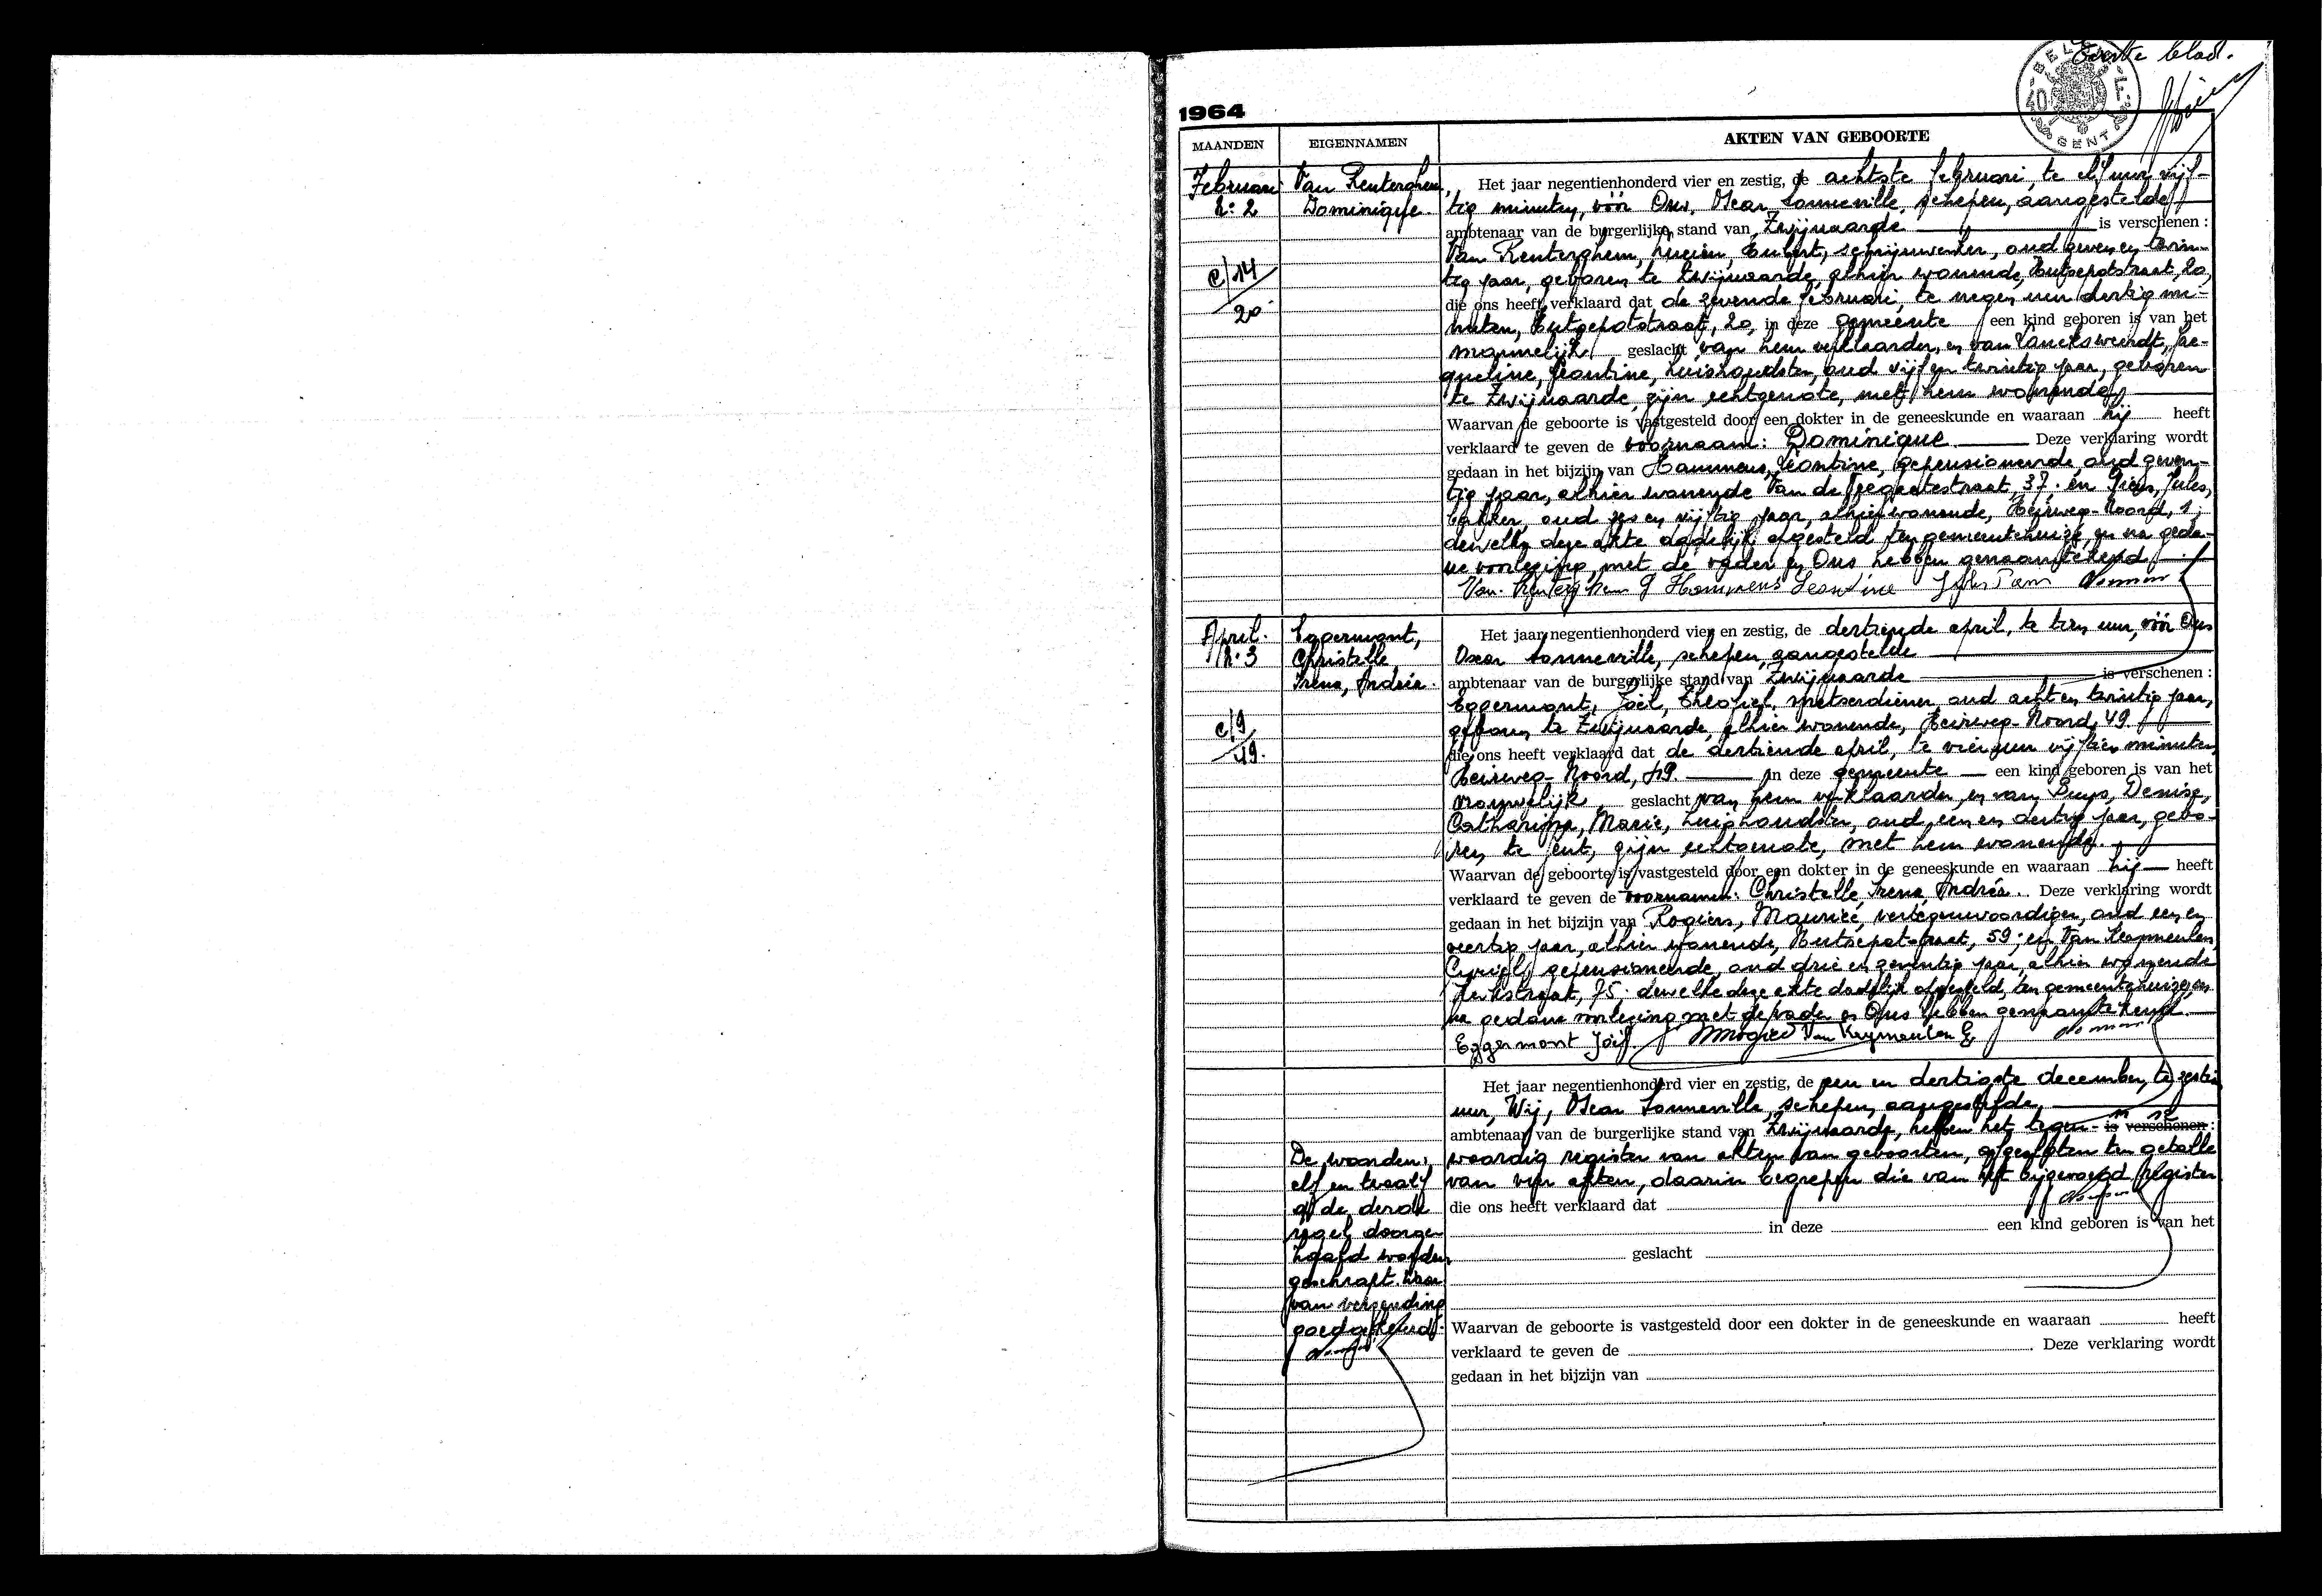 Eerste blad.
BELGIE
40 F
GENT
1964
MAANDEN EIGENNAMEN AKTEN VAN GEBOORTE
Februari
Nr 2
C/14
20
Van Renterghem,
Dominique
Het jaar negentienhonderd vier en zestig, de achtste februari, te elf uur vijf-
tig minuten, vóór Ons, Oscar Sonneville, schepen, aangestelde
ambtenaar van de burgerlijke stand van Zwijnaarde is verschenen :
Van Renterghem, Lucien, Hubert, schrijnwerker, oud zeven en twin-
tig jaar, geboren te Zwijnaarde, alhier wonende, Hutsepotstraat, 20,
die ons heeft verklaard dat de zevende februari, te negen uur dertig mi-
nuten, Hutsepotstraat, 20, in deze gemeente een kind geboren is van het
mannelijk geslacht van hem verklaarder, en van Lancksweerdt, Ja-
queline, Leontine, huishoudster, oud vijf en twintig jaar, geboren
te Zwijnaarde, zijn echtgenote, met hem wonende
Waarvan de geboorte is vastgesteld door een dokter in de geneeskunde en waaraan hij heeft
verklaard te geven de voornaam: Dominique Deze verklaring wordt
gedaan in het bijzijn van Hammens, Leontine, gepensioneerde, oud zeven-
tig jaar, alhier wonende 37; en Jules,
bakker, oud zes en vijftig jaar, alhier wonende, Heirweg-Noord, 1;
dewelke deze akte dadelijk opgesteld ten gemeentehuize, en na geda-
ne voorlezing, met de vader en Ons hebben genaamtekend
Van Renterghem Hammens Leontine
April
Nr 3
C/9
49.
Eggermont,
Christelle,
Irena, Andréa.
Het jaar negentienhonderd vier en zestig, de dertiende april, te tien uur, vóór Ons
Oscar Sonneville, schepen, aangestelde
ambtenaar van de burgerlijke stand van Zwijnaarde is verschenen :
Eggermont, Joël, Theofiel, metserdiener, oud acht en twintig jaar,
geboren te Zwijnaarde, alhier wonende, Heirweg-Noord, 49
die ons heeft verklaard dat de dertiende april, te vier uur vijftien minuten,
Heirweg-Noord, 49 in deze gemeente een kind geboren is van het
vrouwelijk geslacht van hem verklaarder, en van Buys, Denise,
Catharina, Marie, huishoudster, oud een en dertig jaar, gebo-
ren te Gent, zijn echtgenote, met hem wonende.
Waarvan de geboorte is vastgesteld door een dokter in de geneeskunde en waaraan hij heeft
verklaard te geven de voornamen: Christelle, Irena, Andréa. Deze verklaring wordt
gedaan in het bijzijn van Rogiers, Maurice, vertegenwoordiger, oud een en
veertig jaar, alhier wonende, Hutsepotstraat, 59; en Van Keymeulen,
gepensioneerde, oud drie en zeventig jaar, alhier wonende
75; dewelke deze akte dadelijk opgesteld, ten gemeentehuize, en
na gedane voorlezing met de vader en Ons hebben genaamtekend.
Eggermont Joël MRogiers Van Keymeulen
Het jaar negentienhonderd vier en zestig, de een en dertigste december, te zestien
uur, Wij, Oscar Sonneville, schepen, aangestelde
ambtenaar van de burgerlijke stand van Zwijnaarde, hebben het tegen- is verschenen :
woordig register van akten van geboorten, afgesloten ten getalle
van vier akten, daarin begrepen die van het bijgevoegd register
De woorden:
elf en twaalf
op de derde
regel doorge-
haald worden
geschrapt. Waar-
van verzending
goedgekeurd.
die ons heeft verklaard dat
in deze een kind geboren is van het
geslacht
Waarvan de geboorte is vastgesteld door een dokter in de geneeskunde en waaraan heeft
verklaard te geven de Deze verklaring wordt
gedaan in het bijzijn van